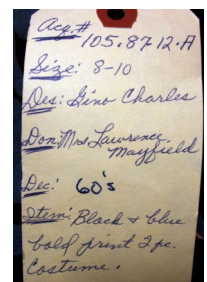 Acq.#
105.87.12.A
Size: 8-10
Des: Gino Charles
Don: Mrs Lawrence
Mayfield
Dec: 60's
Item: Black & blue
bold print 2 pc.
Costume.